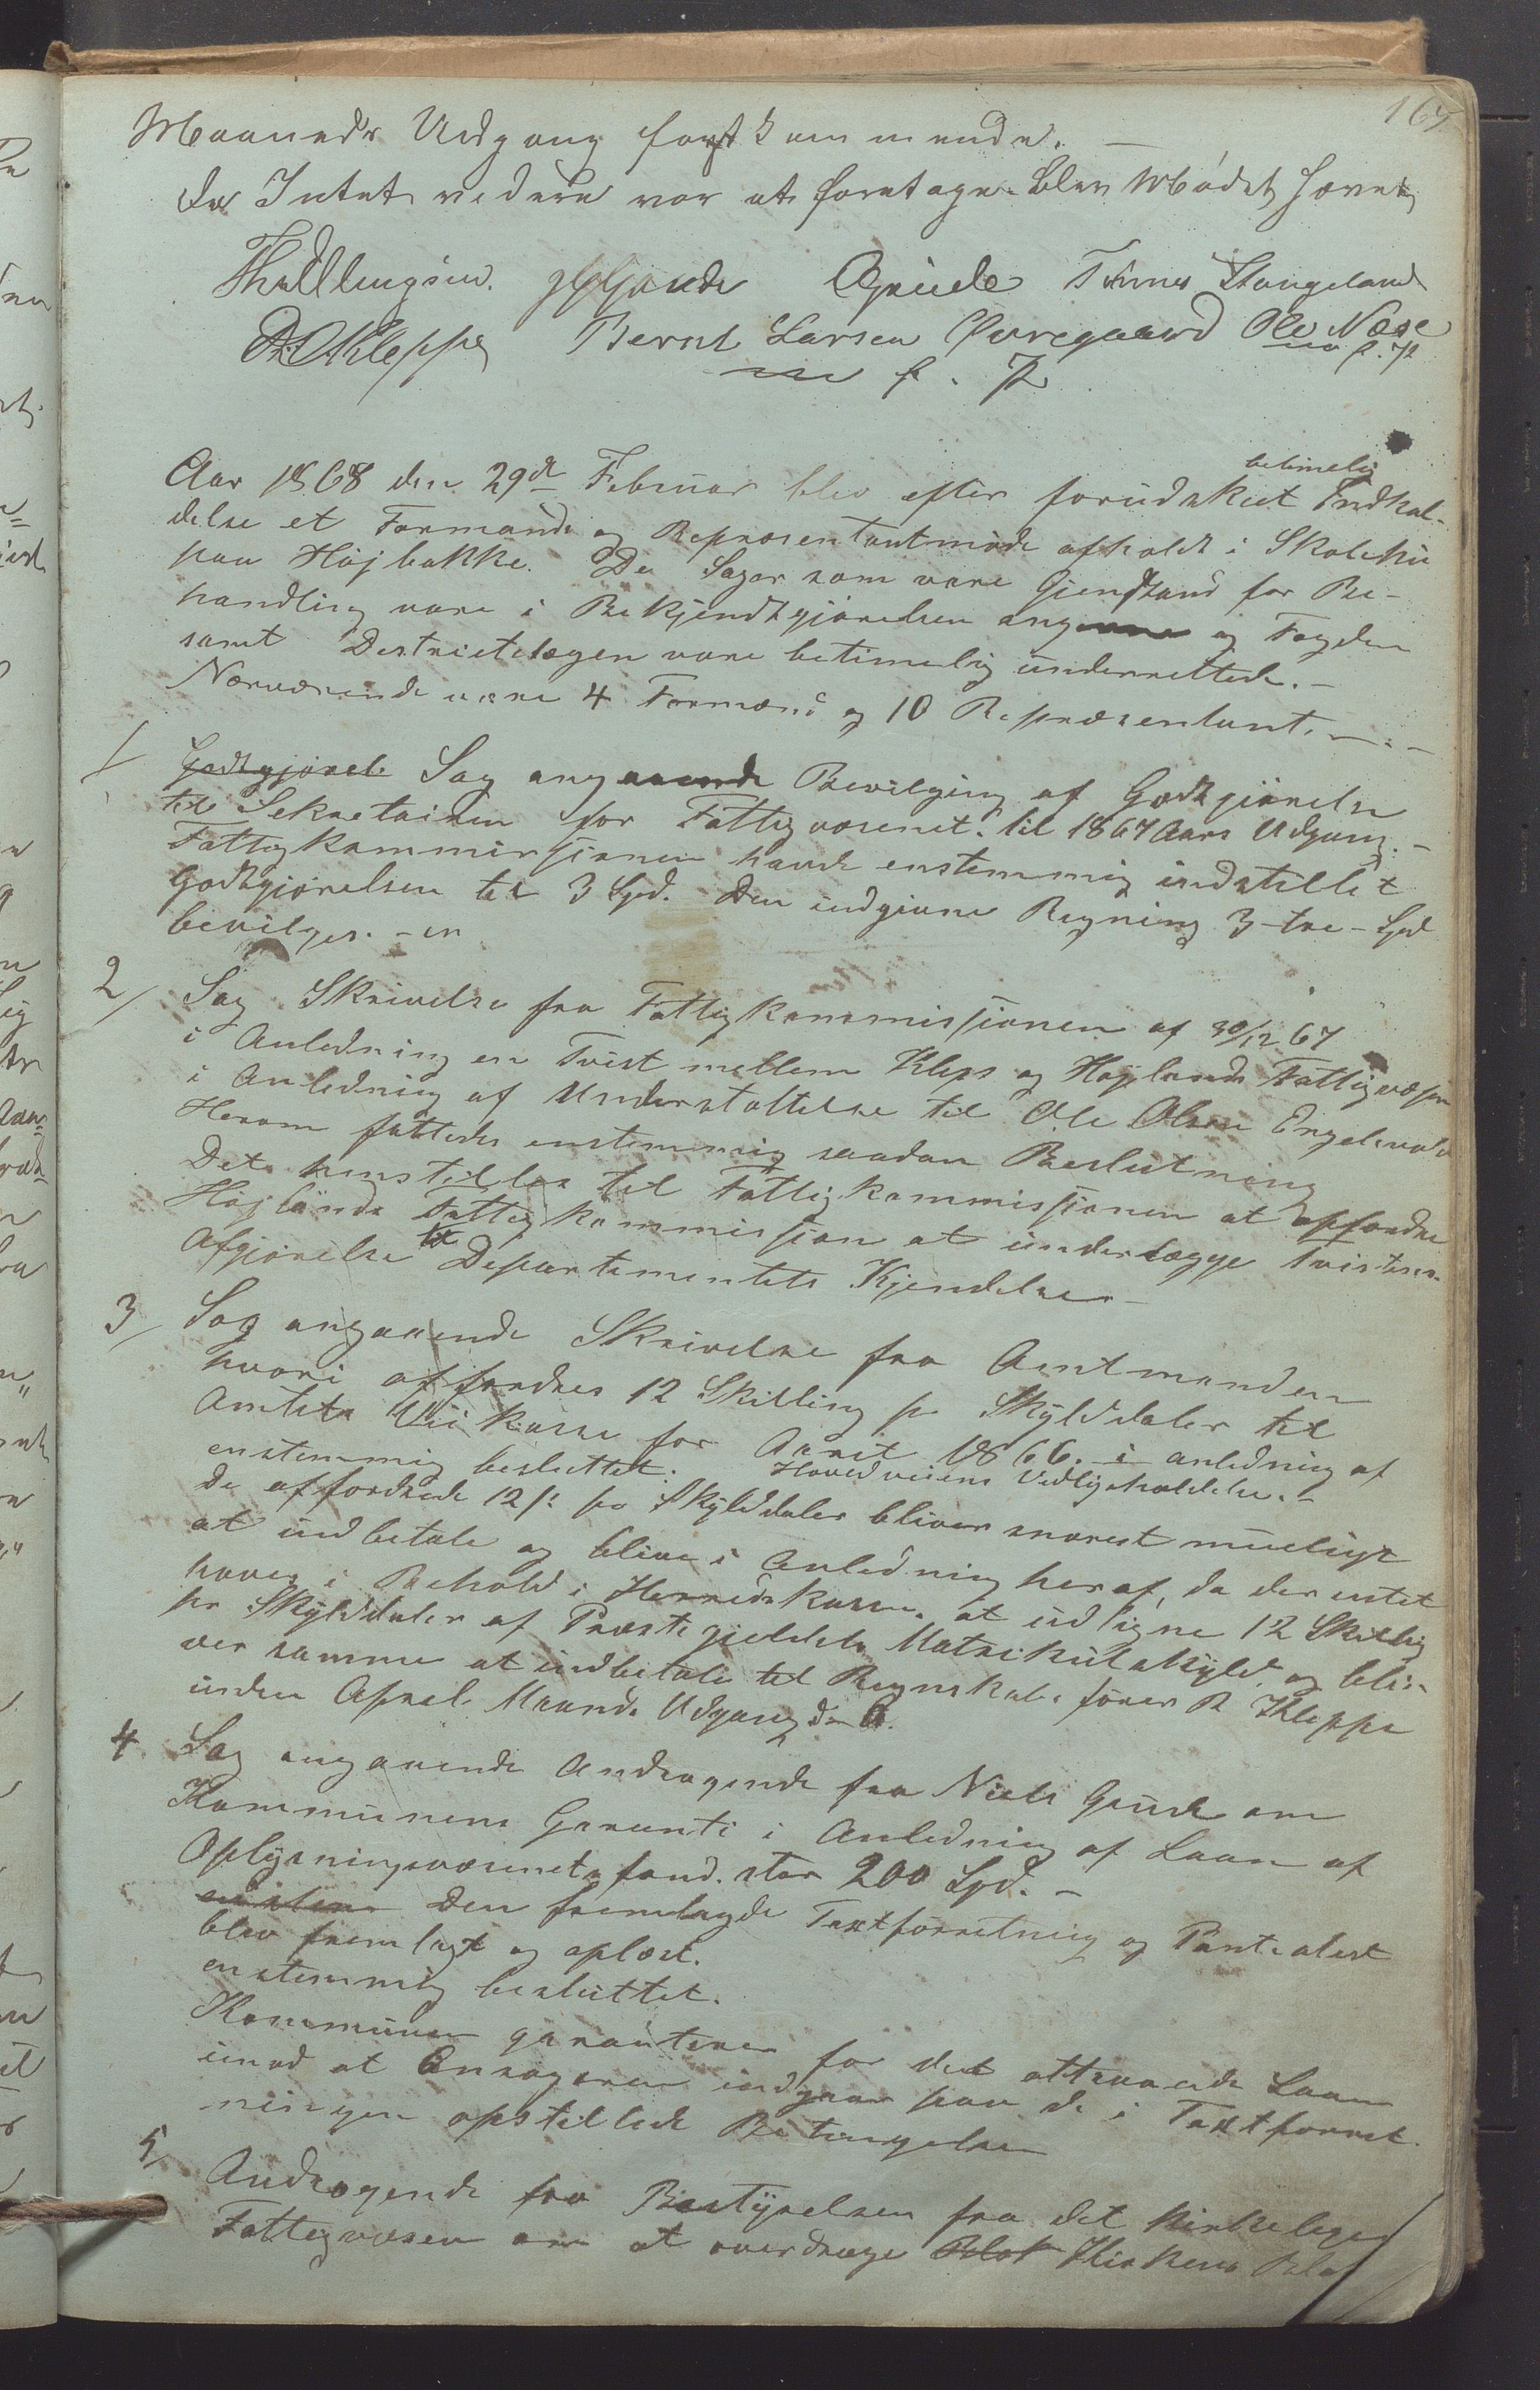 167
Maaneds Udgang forstkommende. —
Da Intet videre var at foretage blev Mødet hævet
Th Ellingsen. Grude Tønnes Stangeland
R. O. Kleppe Bernt Larsen Øvregaard Ole Næse
m f. P. m f. P.
Aar 1868 den 29de Februar blev efter forudskeet betimelig Indkal-
delse et Formands og Repræsentantmøde afholdt i Skolehu
paa Højbakke. De Sager som vare Gjenstand for Be-
handling vare i Bekjendtgjørelsen angivne og Fogden
samt Destrictslægen vare betimelig underrettede. —
Nærværende vare 4 Formænd og 10 Repræsentant. —
1/ Godtgjørels Sag angaaende Bevilging af Godtgjørelse
til Sekretairen for Fattigvæsenet. til 1867 Aars Udgang. —
Fattigkommissjonen havde enstemmig indstillet
Godtgjørelsen til 3 Spd. Den indgivne Regning 3 - tre - Spd
bevilges. - en
2/ Sag Skrivelse fra Fattigkommissjonen af 30/12 67
i Anledning en Tvist mellem Klepp og Højlands Fattigvæsen
i Anledning af Understøttelse til Ole Olsen Engelsvold
Herom fattedes enstemmig saadan Beslutning
Det henstilles til Fattigkommissjonen at opfordre
Højlands Fattigkommissjon at underlægge Tvistens
Afgjørelse til Departementets Kjendelse —
3/ Sag angaaende Skrivelse fra Amtmanden
hvori affordres 12 Skilling pr Skylddaler til
Amtets Veikasse for Aaret 1866. i anledning af
enstemmig besluttet. Hovedveiens Vedligeholdelse. —
De affordrede 12 s: pr Skylddaler bliver snarest mueligt
at indbetale og blive i Anledning heraf, da der intet
haves i Behold i Herredskassen. at udligne 12 Skillig
pr Skylddaler af Præstegjeldets Matrikulskyld, og bli-
ver samme at indbetale til Regnskabsfører R Kleppe
inden April Maands Udgang d. A.
4. Sag angaaende Andragende fra Niels Grude om
Kommunens Garanti i Anledning af Laan af
Oplysningsvæsenets fond. stor 200 Spd. —
enstem Den fremlagde Taxtforretning og Panteatest
blev fremlagt og oplæst.
enstemmig besluttet.
Kommunen garanterer for det attraaede Laan
imod at Ansøgeren indgaar paa de i Taxtforret-
ningen opstillede Betingelser
5/ Andragende fra Bestyrelsen fra det kirkelige
Fattigvæsen om at overdrage Blok Kirkens Blok